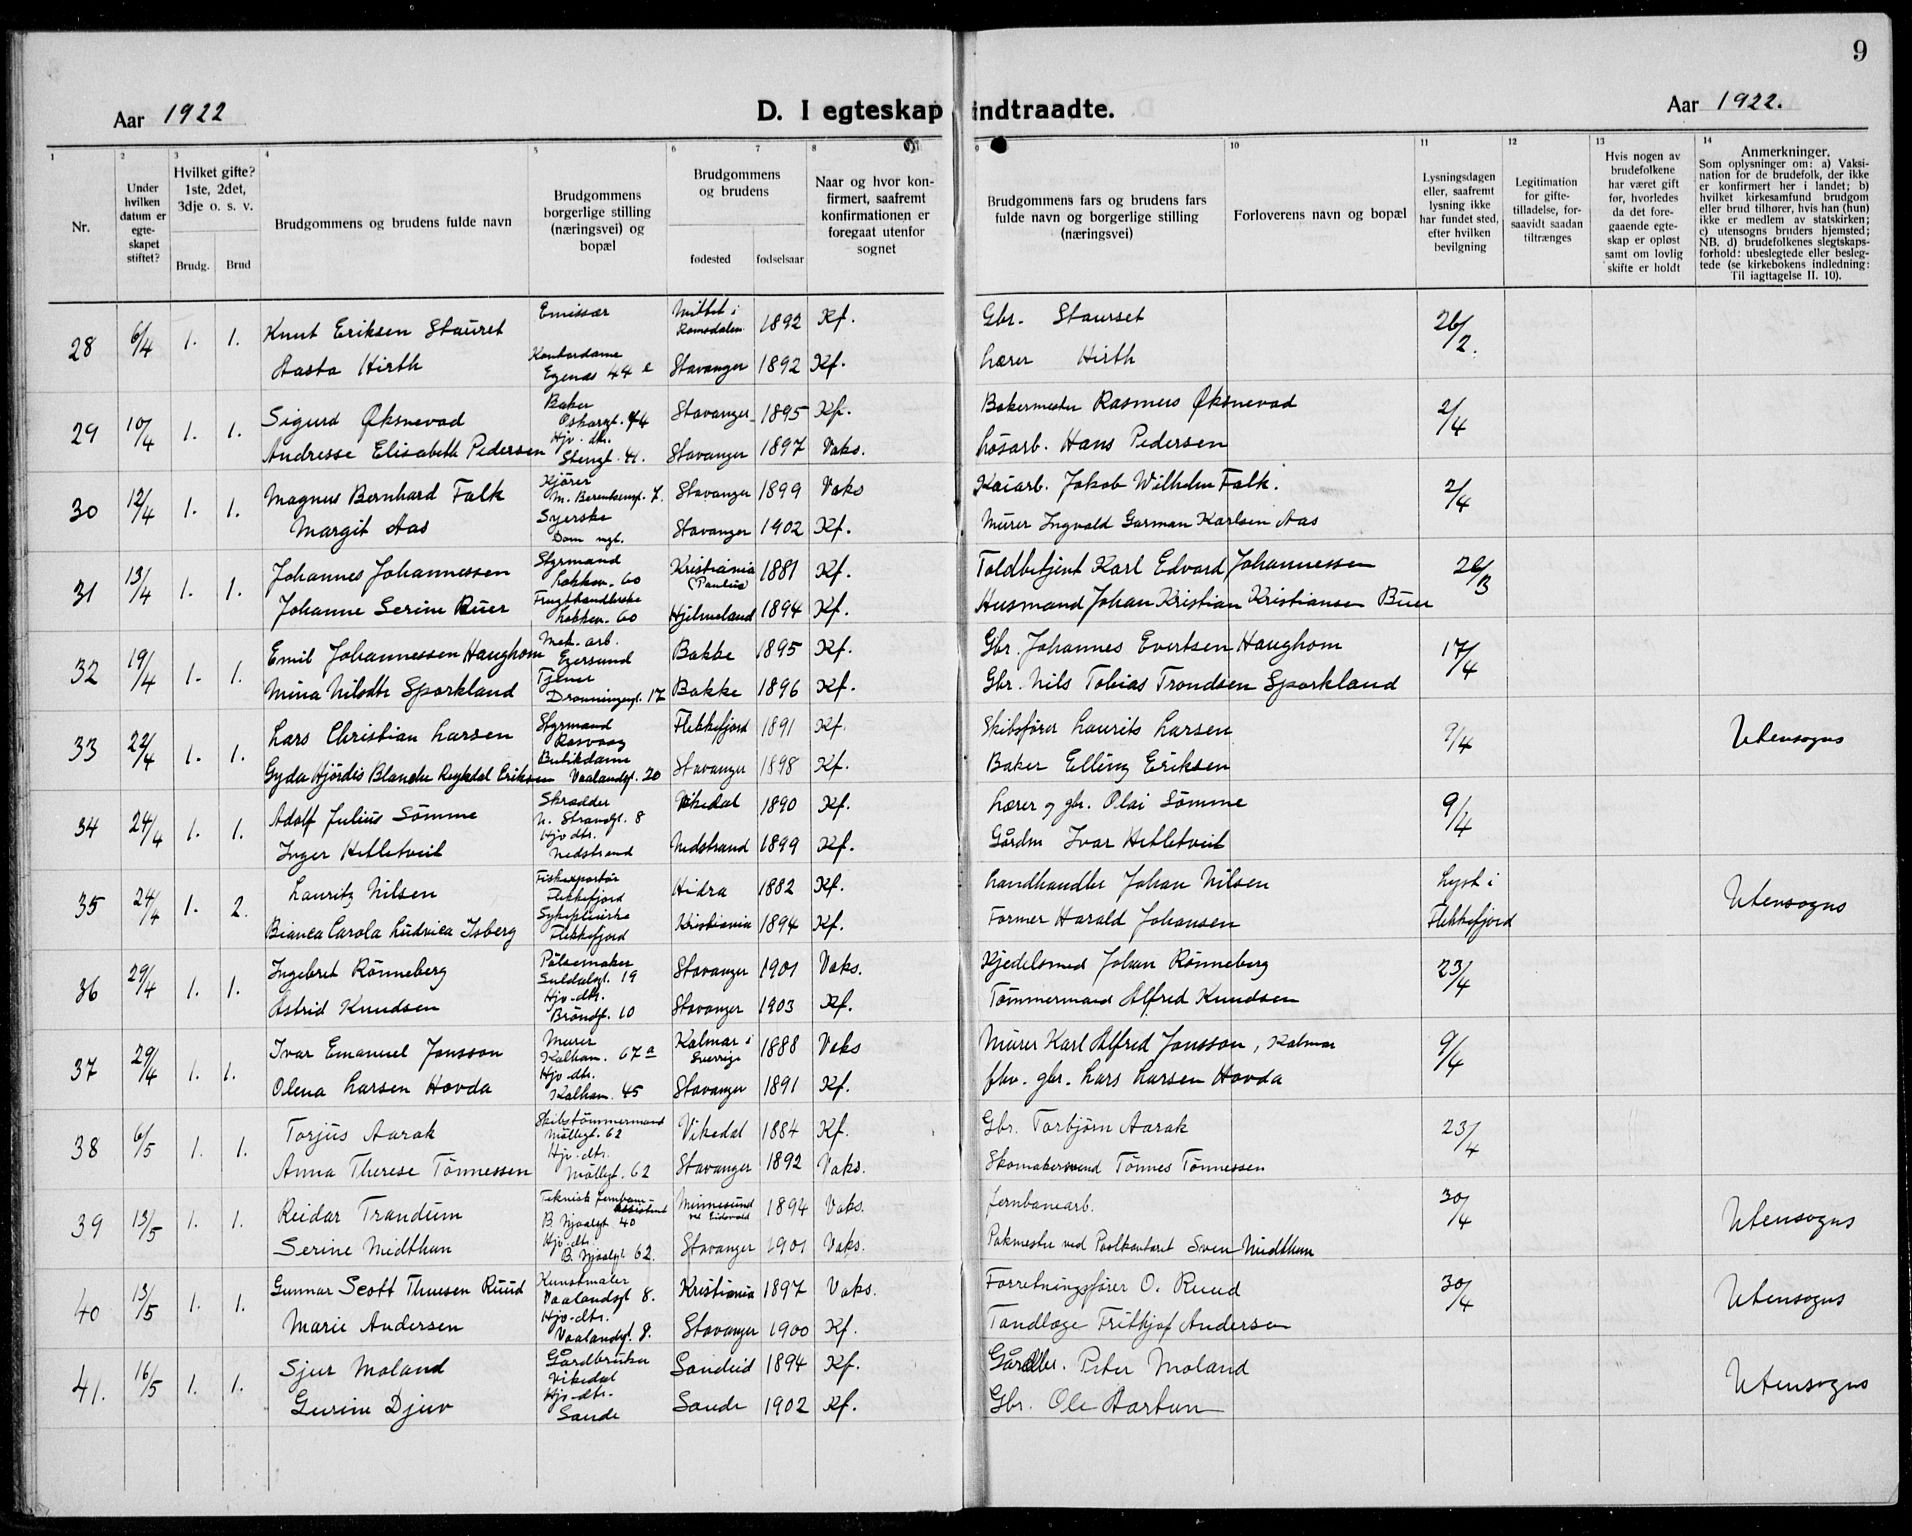 9
Aar 1922
D. I egteskap indtraadte.
Aar 1922.
1 2 3 4 5 6 7 8 9 10 11 12 13 14
Nr.
Under hvilken datum er egteskapet stiftet?
Hvilket gifte? 1ste, 2det, 3dje o. s. v.
Brudg. Brud
Brudgommens og brudens fulde navn
Brudgommens borgerlige stilling (næringsvei) og bopæl
Brudgommens og brudens
fødested fødselsaar
Naar og hvor konfirmert, saafremt konfirmationen er foregaat utenfor sognet
Brudgommens fars og brudens fars fulde navn og borgerlige stilling (næringsvei)
Forloverens navn og bopæl
Lysningsdagen eller, saafremt lysning ikke har fundet sted, efter hvilken bevilgning
Legitimation for giftetilladelse, forsaavidt saadan tiltrænges
Hvis nogen av brudefolkene har været gift før, hvorledes da det foregaaende egteskap er opløst samt om lovlig skifte er holdt
Anmerkninger.
Som oplysninger om: a) Vaksination for de brudefolk, der ikke er konfirmert her i landet; b) hvilket kirkesamfund brudgom eller brud tilhører, hvis han (hun) ikke er medlem av statskirken; c) utensogns bruders hjemsted; NB. d) brudefolkenes slegtskapsforhold: ubeslegtede eller beslegtede (se kirkebokens indledning: Til iagttagelse II. 10).
28 6/4 1. 1. Knut Eriksen Stauret Emissær Mittet i Romsdalen 1892 Kf. Gbr. Staurset 26/2.
Aasta Hirth Kontordame Egenæs 44 e Stavanger 1892 Kf. Lærer Hirth
29 10/4 1. 1. Sigurd Øksnevad Baker Oskarsgt. 44 Stavanger 1895 Kf. Bakermester Rasmus Øksnevad 2/4
Andresse Elisabeth Pedersen Hjv. dtr. Stengt. 41. Stavanger 1897 Vaks. Løsarb. Hans Pedersen
30 12/4 1. 1. Magnus Bernhard Falk Kjører M. Berentsensgt. 7. Stavanger 1899 Vaks Kaiarb. Jakob Wilhelm Falk. 2/4
Margit Aas Syerske Dom. mgt. Stavanger 1902 Kf. Murer Ingvald Garman Karlsen Aas
31 13/4 1. 1. Johannes Johannessen Styrmand Løkkev. 60 Kristiania (Paulus) 1881 Kf. Toldbetjent Karl Edvard Johannessen 26/3
Johanne Serine Buer Frugthandlerske Løkkev. 60 Hjelmeland 1894 Kf. Husmand Johan Kristian Kristiansen Buer
32 19/4 1. 1. Emil Johannessen Haughom Mek. arb. Egersund Bakke 1895 Kf. Gbr. Johannes Evertsen Haughom 17/4
Mina Nilsdtr Sporkland Tjener Dronningensgt. 17 Bakke 1896 Kf. Gbr. Nils Tobias Trondsen Sporkland
33 22/4 1. 1. Lars Christian Larsen Styrmand Rasvaag Flekkefjord 1891 Kf. Skibsfører Laurits Larsen 9/4 Utensogns
Gyda Hjördis Blanche Reykdal Eriksen Butikdame Vaalandsgt. 20 Stavanger 1898 Kf. Baker Elling Eriksen
34 24/4 1. 1. Adolf Julius Sømme Skrædder N. Strandgt. 8 Vikedal 1890 Kf. Lærer og gbr. Olai Sømme 9/4
Inger Hetletveit Hjv. dtr. Nedstrand Nedstrand 1899 Kf. Gårdm Ivar Hetletveit
35 24/4 1. 2. Lauritz Nilsen Fiskexportør Flekkefjord Hidra 1882 Kf. Landhandler Johan Nilsen Lyst i Flekkefjord Utensogns
Bianca Carola Ludvica Isberg Sykepleierske Flekkefjord Kristiania 1894 Kf. Former Harald Johansen
36 29/4 1. 1. Ingebret Rønneberg Pølsemaker Suldalsgt. 19 Stavanger 1901 Vaks. Kjedelsmed Johan Rønneberg 23/4
Astrid Knudsen Hjv-dtr. Brøndgt. 10 Stavanger 1903 Kf. Tømmermand Alfred Knudsen
37 29/4 1. 1. Ivar Emanuel Jonsson Murer Kalham. 67 a Kalmar i Sverrige 1888 Vaks Murer Karl Alfred Jonsson, Kalmar 9/4
Olena Larsen Hovda Hjv-dtr. Kalham. 45 Stavanger 1891 Kf. fhv. gbr. Lars Larsen Hovda
38 6/5 1. 1. Torjus Aarak Skibstømmermand Møllegt. 62 Vikedal 1884 Kf. Gbr. Torbjørn Aarak 23/4
Anna Therese Tønnessen Hjv-dtr. Møllegt. 62 Stavanger 1892 Vaks. Skomakersvend Tønnes Tønnessen
39 13/5 1. 1. Reidar Trandum Teknisk jernbane assistent B. Njaalsgt 40 Minnesund ved Eidsvold 1894 Vaks. jernbanearb. 30/4 Utensogns
Serine Midthun Hjv-dtr. B. Njaalsgt 62. Stavanger 1901 Vaks. Pakmester ved Postkontoret Sven Midthun
40 13/5 1. 1. Gunnar Scott Thuesen Ruud Kunstmaler Vaalandsgt 8. Kristiania 1897 Vaks. Forretningsfører O. Ruud 30/4 Utensogns
Marie Andersen Hjv-dtr. Vaalandsgt. 8. Stavanger 1900 Kf. Tandlæge Fritkjof Andersen
41. 16/5 1. 1. Sjur Moland Gårdbruker Vikedal Sandeid 1894 Kf. Gårdbr. Peter Moland Utensogns
Gurine Djuv Hjv-dtr. Sande Sande 1902 Kf. Gbr. Ole Aartun